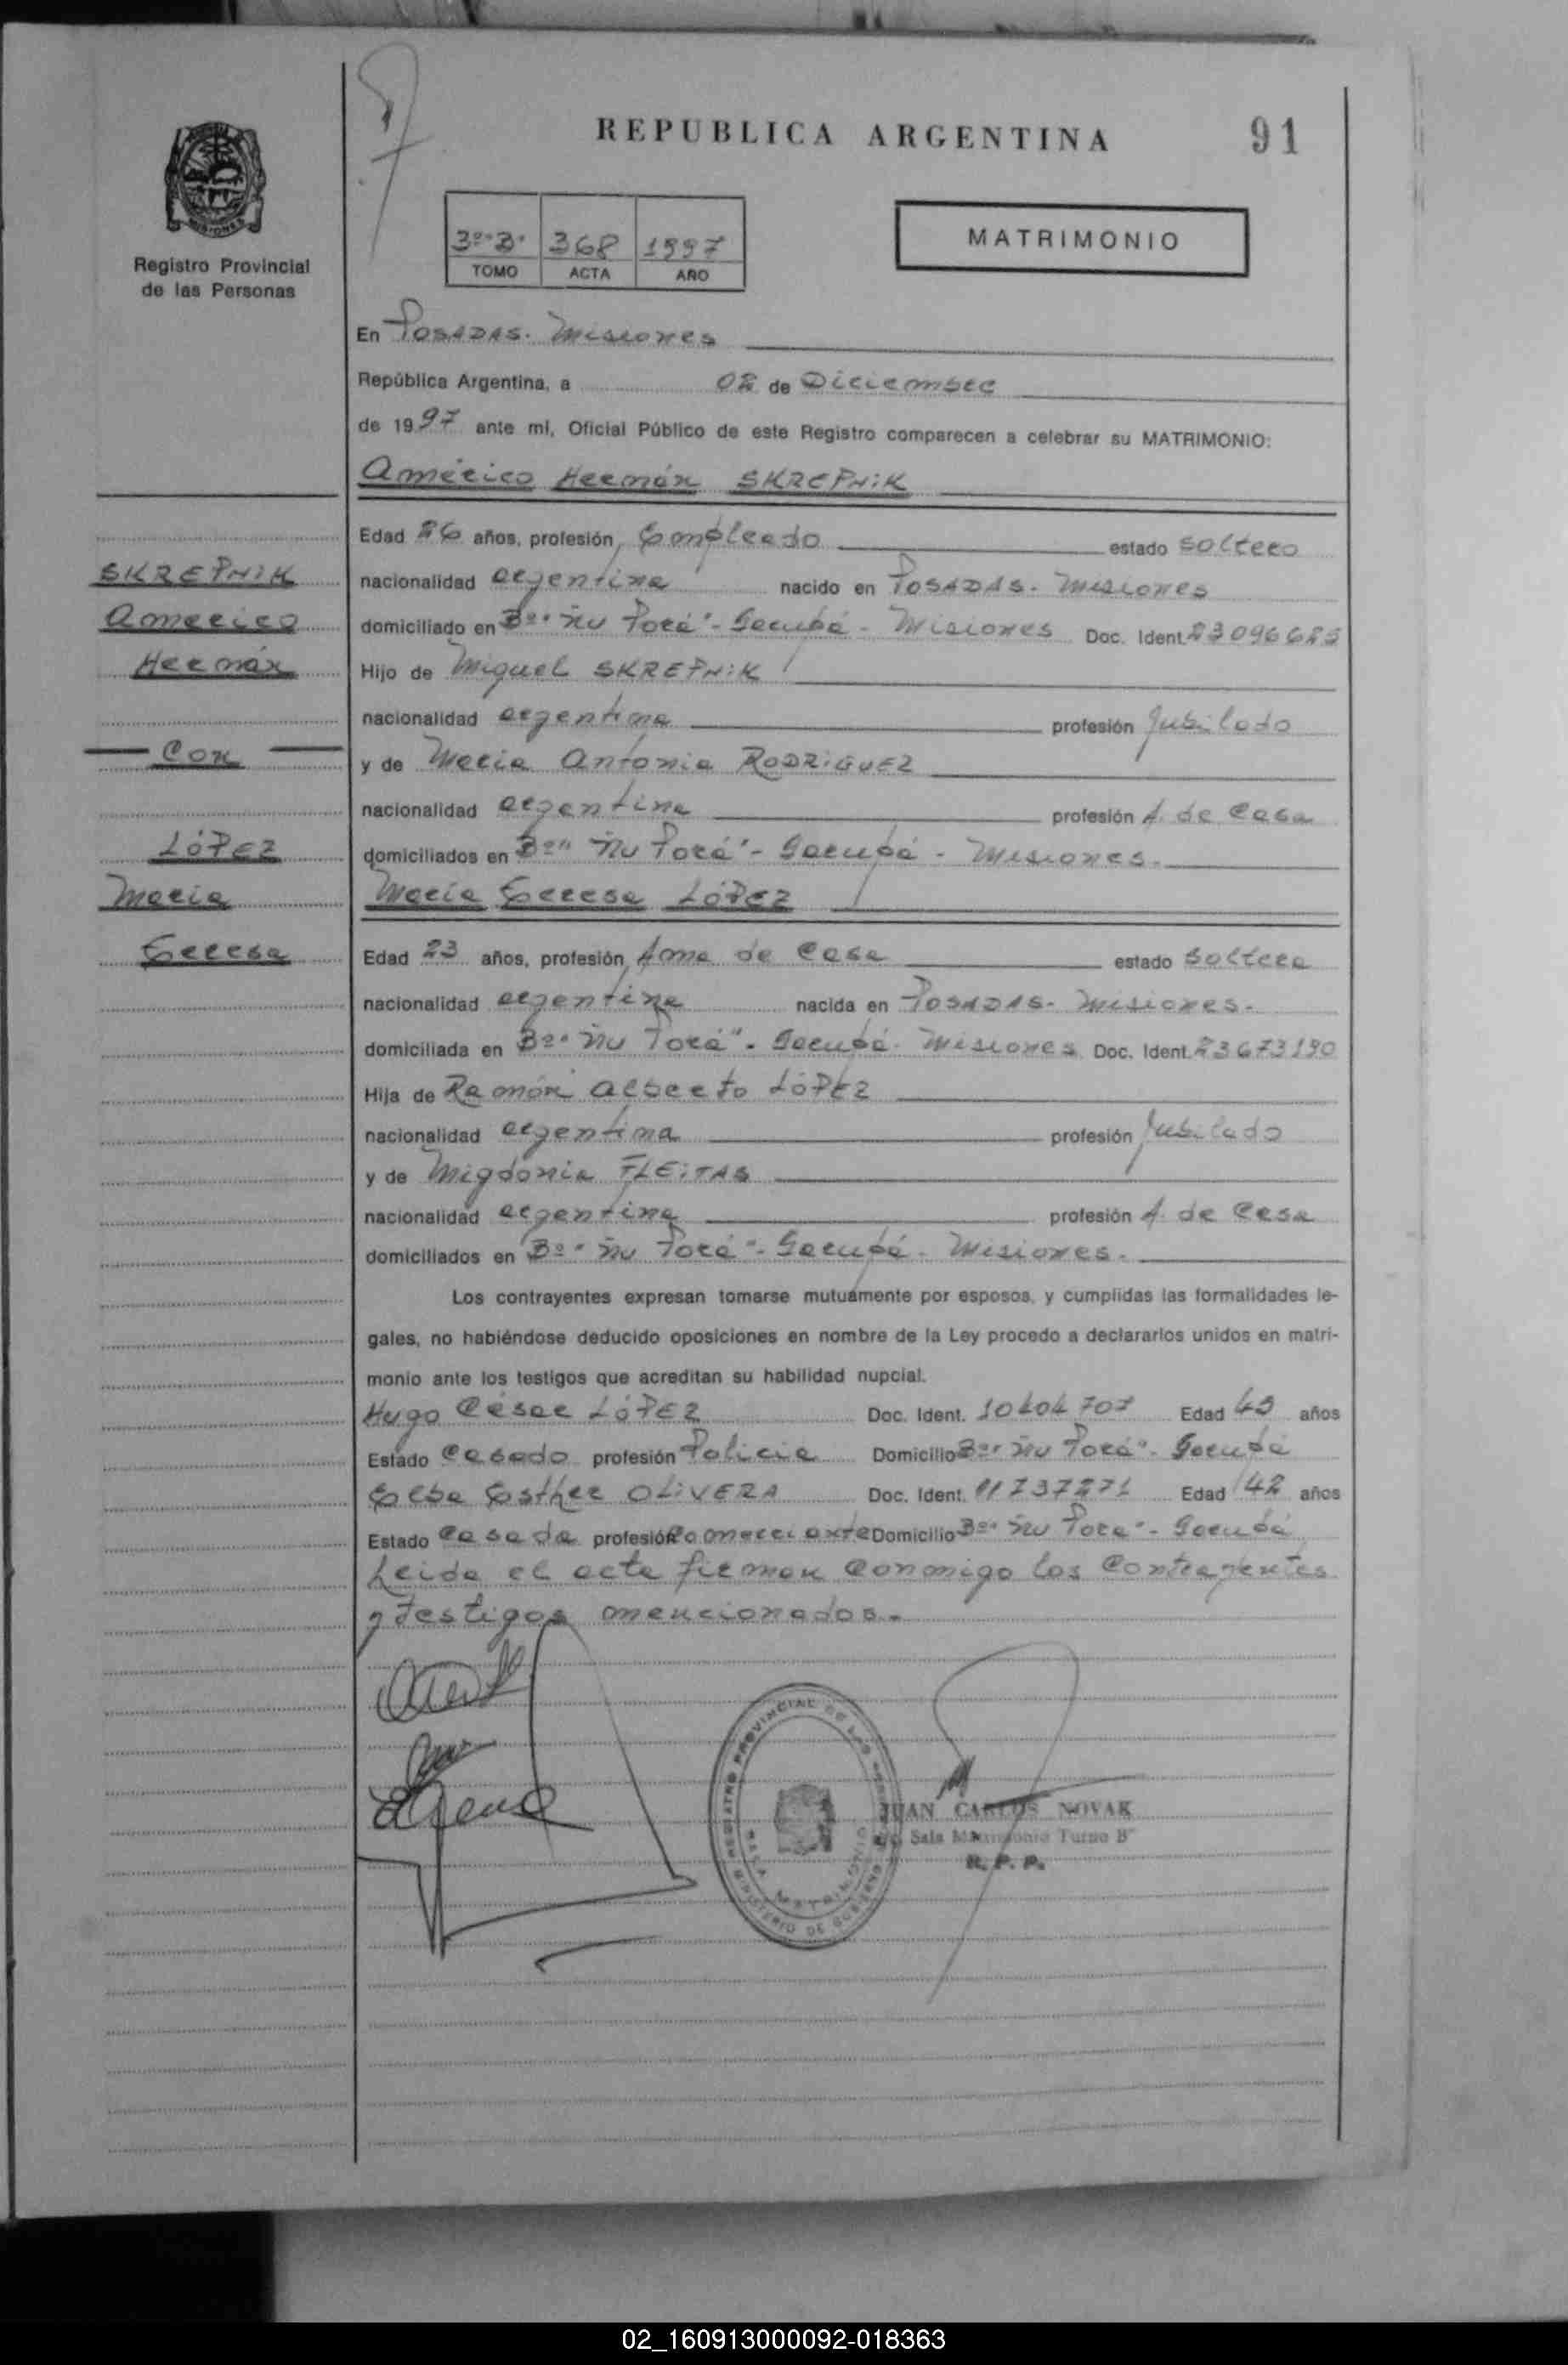 REPUBLICA ARGENTINA
91
MISIONES
Registro Provincial
de las Personas
3º "B" 368 1997
TOMO ACTA AÑO
MATRIMONIO
En Posadas. Misiones
República Argentina, a 02 de Diciembre
de 1997 ante mí, Oficial Público de este Registro comparecen a celebrar su MATRIMONIO:
Américo Hernán SKREPNIK
SKREPNIK
Américo
Hernán
Con
LÓPEZ
María
Teresa
Edad 26 años, profesión Empleado estado soltero
nacionalidad argentina nacido en Posadas - Misiones
domiciliado en Bº "Ñu Porá" - Garupá - Misiones Doc. Ident. 23096685
Hijo de Miguel SKREPNIK
nacionalidad argentina profesión Jubilado
y de María Antonia RODRIGUEZ
nacionalidad argentina profesión A. de Casa
domiciliados en Bº "Ñu Porá" - Garupá - Misiones.
María Teresa LÓPEZ
Edad 23 años, profesión Ama de Casa estado soltera
nacionalidad argentina nacida en Posadas - Misiones.
domiciliada en Bº "Ñu Porá" - Garupá - Misiones Doc. Ident. 23673190
Hija de Ramón Alberto LÓPEZ
nacionalidad argentina profesión Jubilado
y de Migdonia FLEITAS
nacionalidad argentina profesión A. de Casa
domiciliados en Bº "Ñu Porá" - Garupá - Misiones.
Los contrayentes expresan tomarse mutuamente por esposos, y cumplidas las formalidades le-
gales, no habiéndose deducido oposiciones en nombre de la Ley procedo a declararlos unidos en matri-
monio ante los testigos que acreditan su habilidad nupcial.
Hugo César LÓPEZ Doc. Ident. 10404707 Edad 45 años
Estado Casado profesión Policía Domicilio Bº "Ñu Porá" - Garupá
Elba Esther OLIVERA Doc. Ident. 11737271 Edad 42 años
Estado Casada profesión Comerciante Domicilio Bº "Ñu Porá" - Garupá
Leída el acta firman conmigo los contrayentes
y testigos mencionados.-
REGISTRO PROVINCIAL DE LAS PERSONAS
SALA MATRIMONIO
MINISTERIO DE GOBIERNO
JUAN CARLOS NOVAK
Sala Matrimonio Turno B"
R. P. P.
02_160913000092-018363